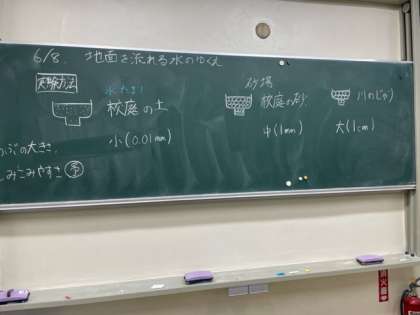 6/8. 地面を流れる水のゆくえ
実験方法
水たまり
校庭の土
小(0.01mm)
砂場
校庭の砂
中(1mm)
川のじゃり
大(1cm)
つぶの大きさ、
しみこみやすさ 予
消火器